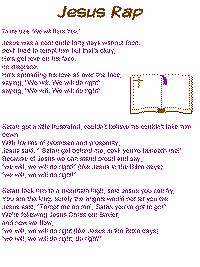 Jesus Rap
Jesus was a cool dude forty days without food.
Devil tried to tempt him but that's okay,
He's got love on his face,
no disgrace.
He's spreading his love all over the place,
saying, "We will, We will do right"
saying, "We will, We will do right"
Satan got a little frustrated, couldn't believe he couldn't take him
down
With her ties of promises and prosperity,
Jesus said, " Satan get behind me, can't you
Because of Jesus we can stand proud and say,
"we will, we will do right" (like Jesus in the Bible days)
"we will, we will do right"
Satan took him to a mountain high, said Jesus you can fly,
You are the king, surely the angels would not let you die
Jesus said, "Forget me do not, Satan you've got to go!"
We're following Jesus Christ our Savior,
and now we know,
"we will, we will do right (like Jesus in the Bible days)
"we will, we will do right, do right!"